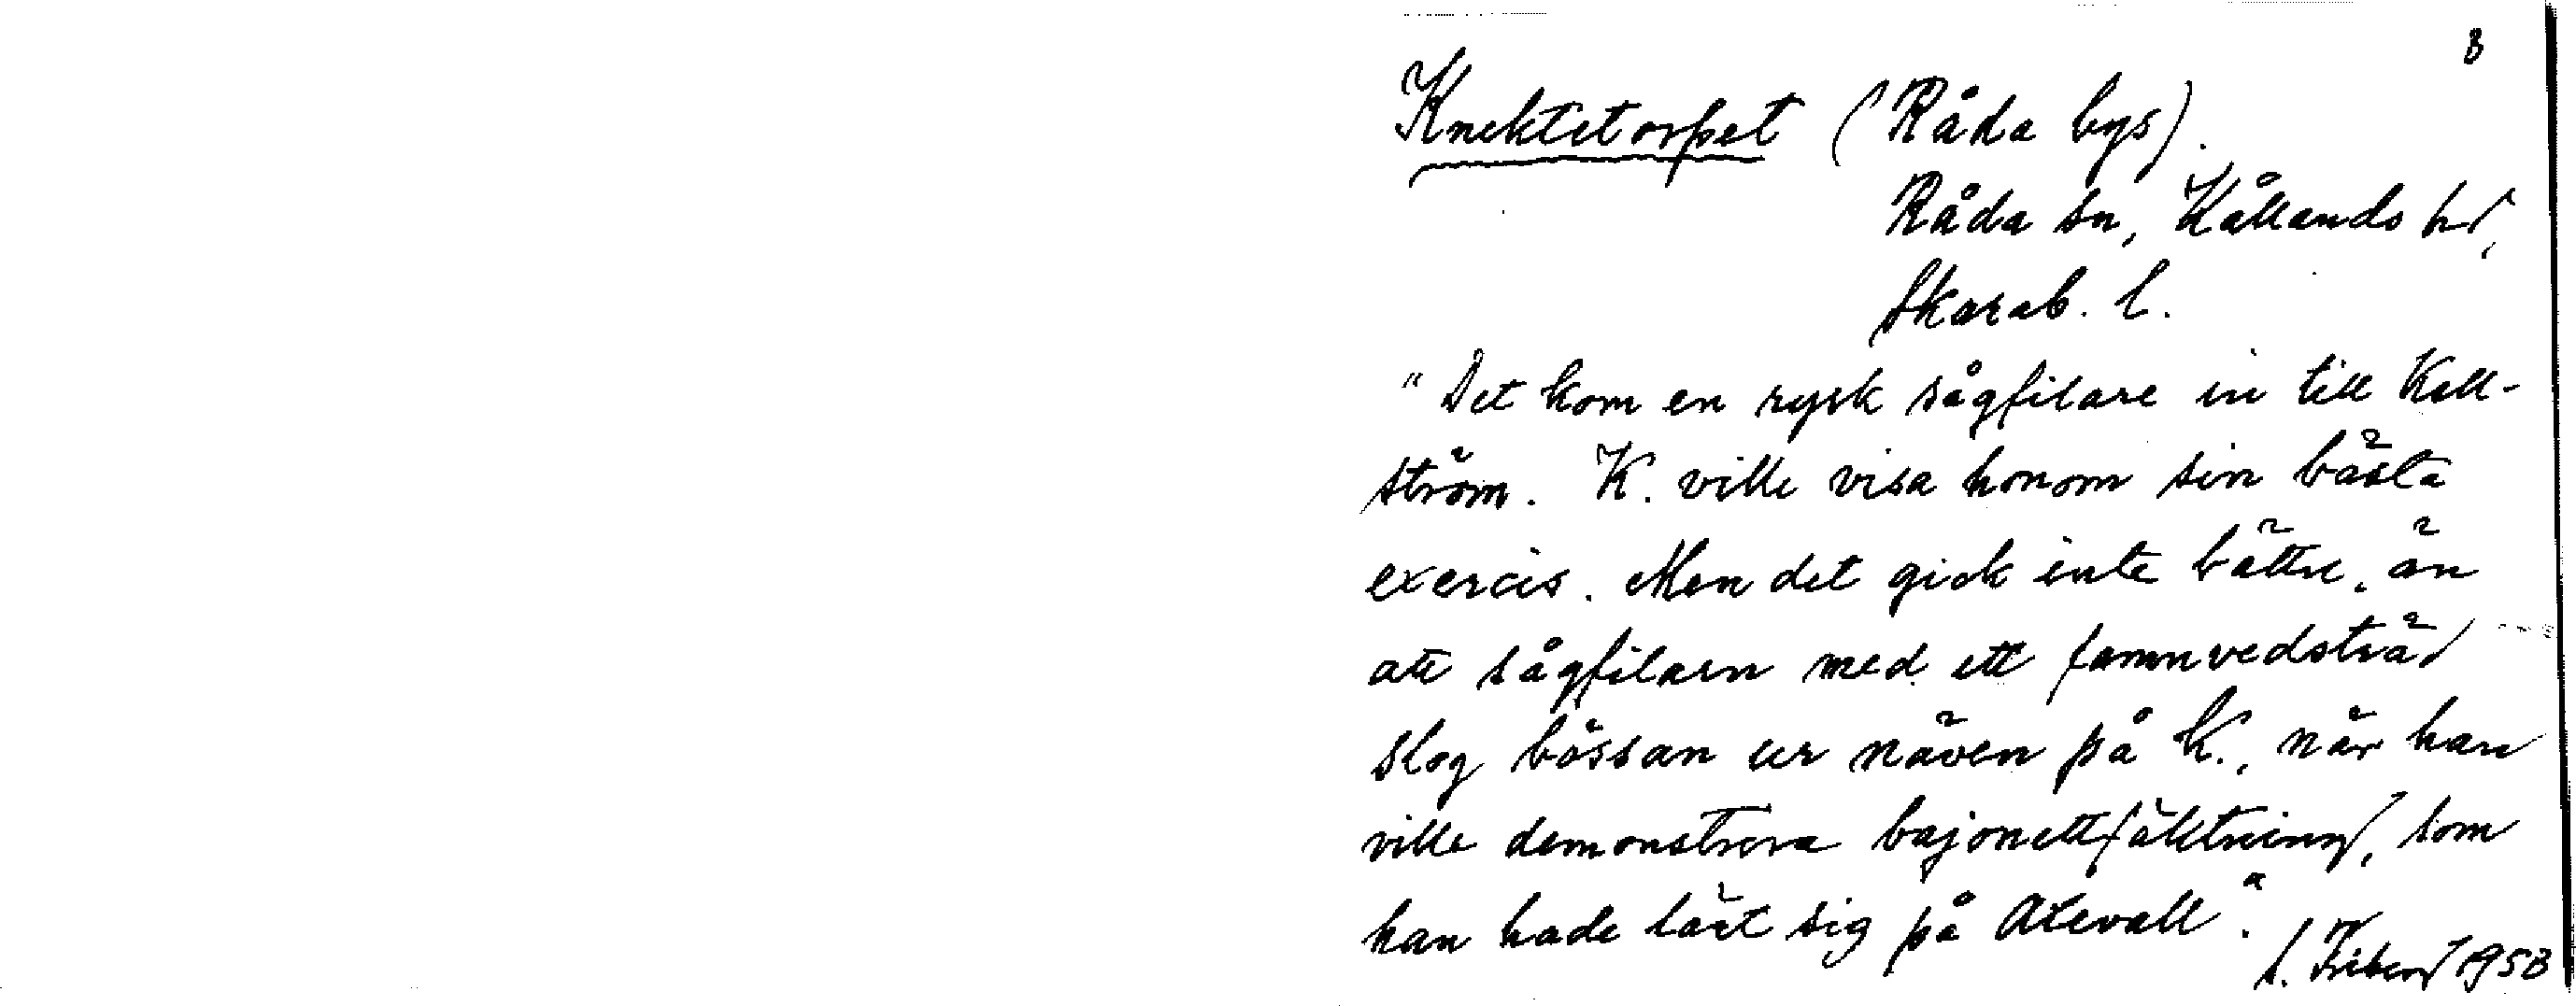 8
Knektetorpet (Råda bys).
Råda sn, Kållands hd,
Skarab. l.
"Det kom en rysk sågfilare in till Kell-
ström. K. ville visa honom sin bästa
exercis. Men det gick inte bättre, än
att sågfilarn med ett famnvedsträd
slog bössan ur näven på K., när han
ville demonstrera bajonettfäktning, som
han hade lärt sig på Axevall".
1958